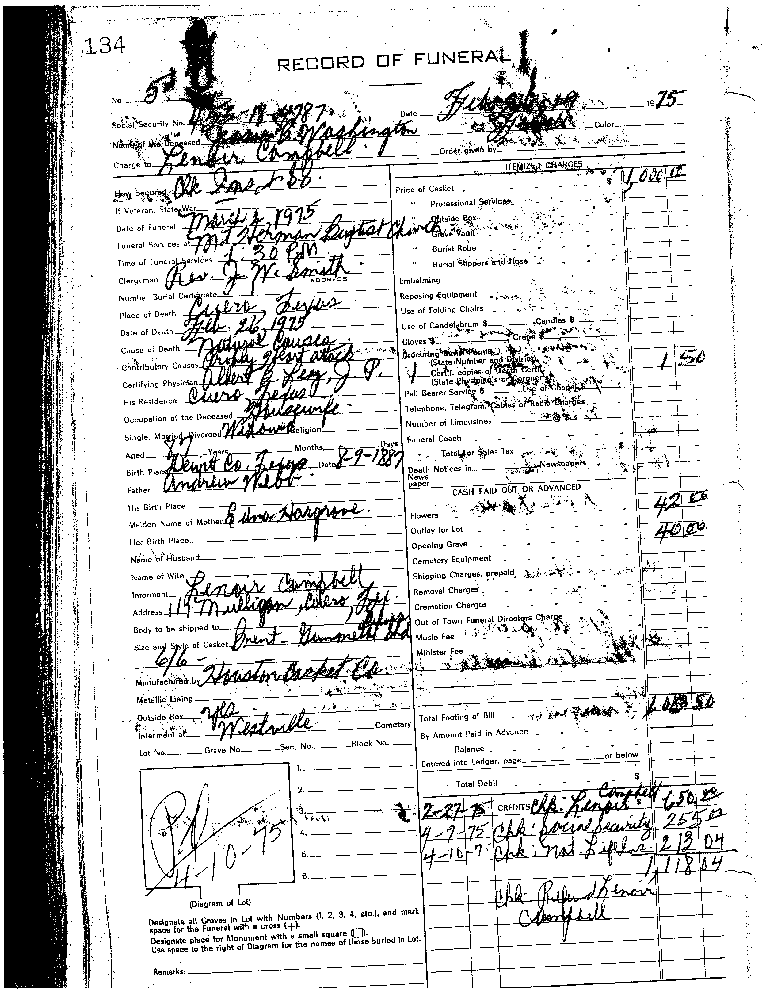 134
RECORD OF FUNERAL
No. 5
Date 1975
Social Security No.
Name of the Deceased Washington Color
Charge to Lenoir Campbell Order given by
How Secured Ins. ITEMIZED CHARGES
If Veteran, State War Price of Casket $ 1,000 00
Date of Funeral March 2, 1975 " Professional Services
Funeral Services at Mt Herman Baptist Church " Outside Box
Time of Funeral Services 1:30 P.M " Grave Vault
Clergyman Rev. J. W. Smith ADDRESS " Burial Robe
Number Burial Certificate " Burial Slippers and Hose
Place of Death Cuero, Texas Embalming
Date of Death Feb. 26, 1975 Reposing Equipment
Cause of Death Natural Causes Use of Folding Chairs
Contributory Causes Heart attack Use of Candelabrum $ Candles $
Certifying Physician Albert Ley, J. P. Gloves $ Crepe $
His Residence Cuero, Texas 1 (State Number and Division) 1 50
Occupation of the Deceased Housewife Pall Bearer Service $
Single, Married, Divorced Widowed Religion Telephone, Telegram, Cables or Radio Charges
Aged 87 Years Months Days Number of Limousines
Birth Place Dewitt Co. Texas Date 8-9-1887 Funeral Coach
Father Andrew Webb Total or Sales Tax
His Birth Place Death Notices in Newspapers
News paper
CASH PAID OUT OR ADVANCED
Maiden Name of Mother Edna Hargrove Flowers 42 00
Her Birth Place Outlay for Lot 40 00
Name of Husband Opening Grave
Name of Wife Cemetery Equipment
Informant Lenoir Campbell Shipping Charges, prepaid
Address 117 Mulligan, Cuero, Tex. Removal Charges
Body to be shipped to Cremation Charges
Size and Style of Casket Gunmetal Out of Town Funeral Directors Charge
6/6 Music Fee
Manufactured by Houston Casket Co. Minister Fee
Metallic Lining
Outside Box yes Total Footing of Bill 50
Interment at Westville Cemetery By Amount Paid in Advance
Lot No. Grave No. Sec. No. Block No. Balance
Entered into Ledger, page or below
Total Debit $
1.
2.
3.
4.
5.
6.
Pd
4-10-75
(Diagram of Lot)
2-27-75 CREDITS Chk. Lenoir Campbell 650.00
4-7-75 Chk: Social Security 255 00
4-10-7 Chk: Nat. Life Ins. 213 04
1,118 04
Chk Refund Lenoir
Campbell
Designate all Graves in Lot with Numbers (1, 2, 3, 4, etc.), and mark
space for the Funeral with a cross (+).
Designate place for Monument with a small square (□).
Use space to the right of Diagram for the names of those buried in Lot.
Remarks: